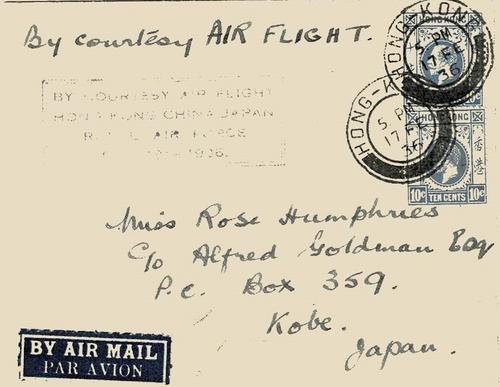 By courtesy AIR FLIGHT.
HONG-KONG
5 PM
17 FE
36
HONG KONG
BY COURTESY AIR FLIGHT
HONG KONG CHINA JAPAN
AIR FORCE
1936.
HONG-KONG
5 PM
17 FE
36
HONG KONG
香港
10c TEN CENTS 10c
Miss Rose Humphries
c/o Alfred Goldman Esq
P.C. Box 359.
Kobe.
Japan.
BY AIR MAIL
PAR AVION